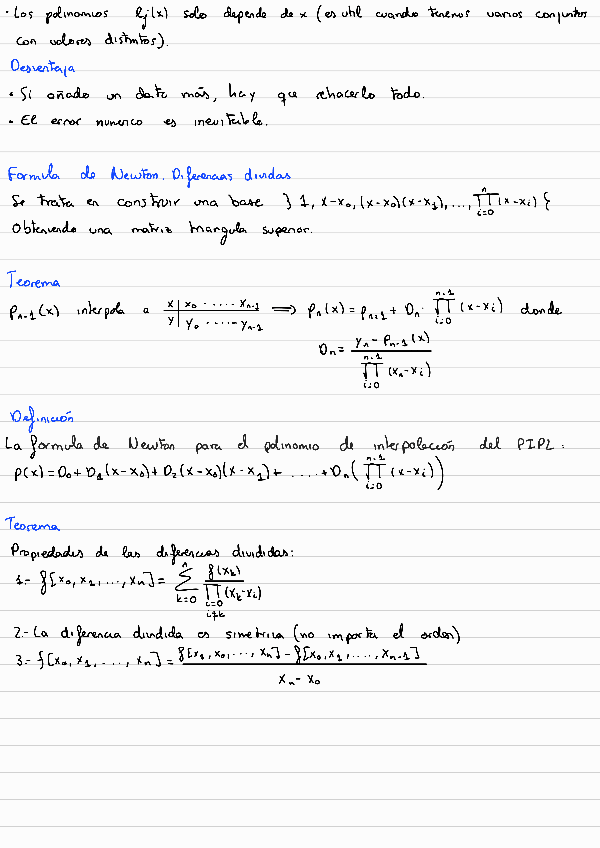 · Los polinomios lj(x) solo depende de x (es util cuando tenemos varios conjuntos
con valores distintos).
Desventaja
• Si añado un dato más, hay que rehacerlo todo.
• El error numerico es inevitable.
Formula de Newton. Diferencias dividas
Se trata en construir una base } 1, x-x₀, (x-x₀)(x-x₁), ..., ∏_{i=0}^{n} (x-xᵢ) {
Obteniendo una matriz triangula superior.
Teorema
Pₙ₋₁(x) interpola a x | x₀ ..... xₙ₋₁ ⟹ pₙ(x) = pₙ₋₁ + Dₙ · ∏_{i=0}^{n-1} (x-xᵢ) donde
y | y₀ ..... yₙ₋₁
Dₙ = (yₙ - Pₙ₋₁(x)) / (∏_{i=0}^{n-1} (xₙ-xᵢ))
Definición
La formula de Newton para el polinomio de interpolación del PIPL:
p(x) = D₀ + D₁(x-x₀) + D₂(x-x₀)(x-x₁) + ..... + Dₙ( ∏_{i=0}^{n-1} (x-xᵢ) )
Teorema
Propiedades de las diferencias divididas:
1.- f[x₀, x₁, ..., xₙ] = ∑_{k=0}^{n} f(xₖ) / ∏_{i=0, i≠k} (xₖ-xᵢ)
2.- La diferencia dividida es simetrica (no importa el orden)
3.- f[x₀, x₁, ..., xₙ] = (f[x₁, x₀, ..., xₙ] - f[x₀, x₁, ..., xₙ₋₁]) / (xₙ - x₀)